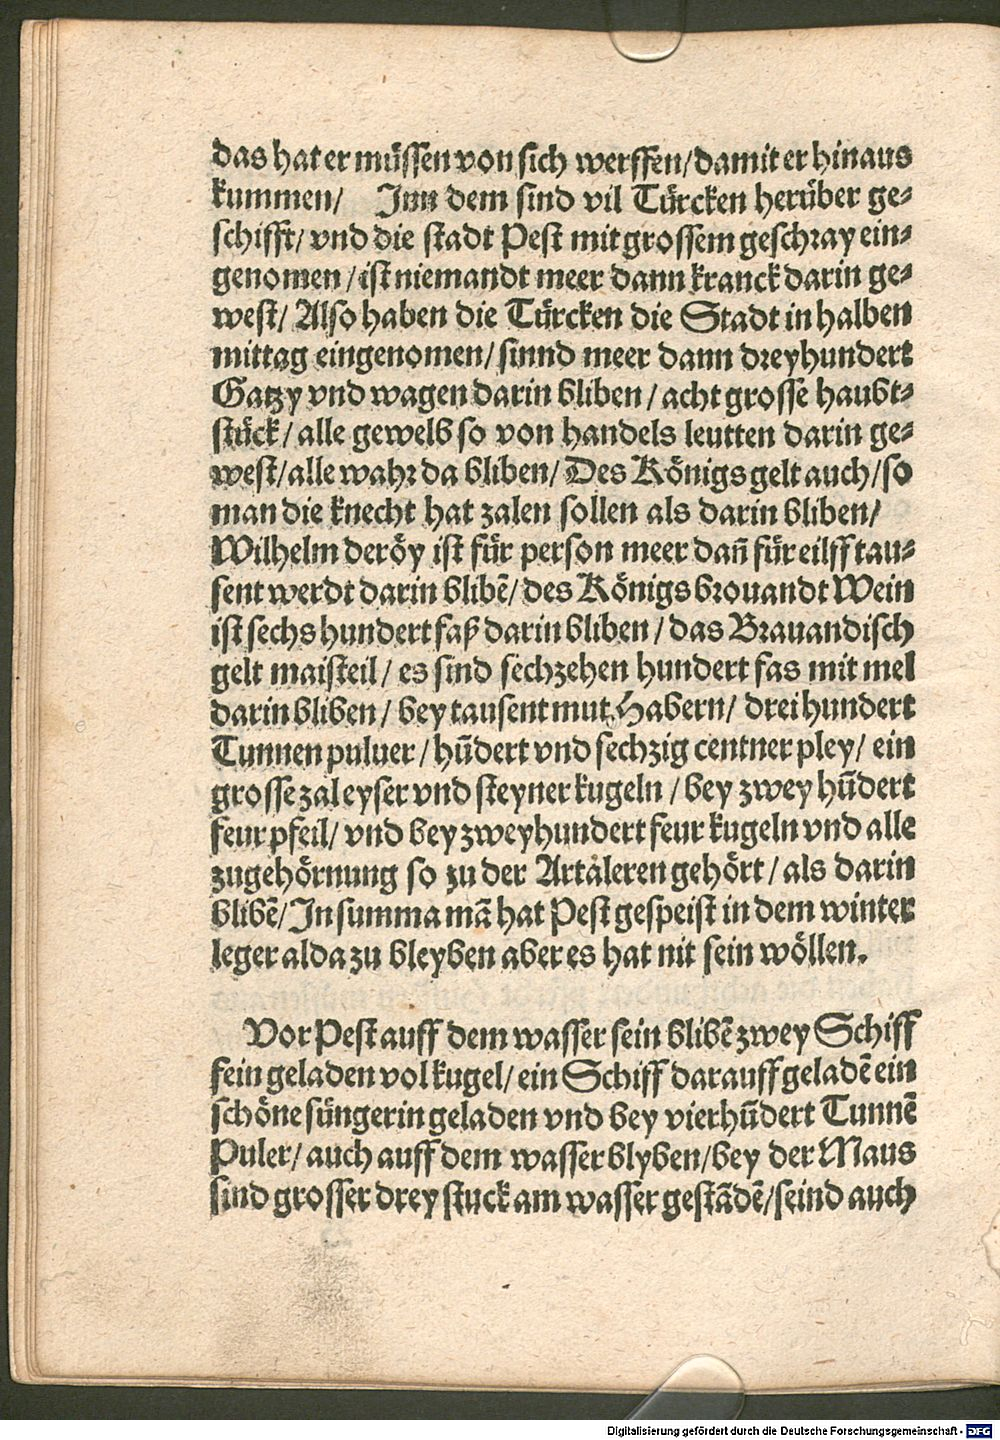 das hat er müssen von sich werffen/ damit er hinaus
kummen/ Inn dem sind vil Türcken herüber ge⸗
schifft/ vnd die stadt Pest mit grossem geschray ein⸗
genomen/ ist niemandt meer dann kranck darin ge⸗
west/ Also haben die Türcken die Stadt in halben
mittag eingenomen/ sinnd meer dann dreyhundert
Gatzy vnd wagen darin bliben/ acht grosse haubt⸗
stück/ alle gewelb so von handels leutten darin ge⸗
west/ alle wahr da bliben/ Des Königs gelt auch/ so
man die knecht hat zalen sollen als darin bliben/
Wilhelm deröy ist für person meer dañ für eilff tau⸗
sent werdt darin blibē/ des Königs brouandt Wein
ist sechs hundert faß darin bliben/ das Brauandisch
gelt maisteil/ es sind sechzehen hundert fas mit mel
darin bliben/ bey tausent mut Habern/ drei hundert
Tunnen puluer/ hūdert vnd sechzig centner pley/ ein
grosse zal eyser vnd steyner kugeln/ bey zwey hūdert
feur pfeil/ vnd bey zweyhundert feur kugeln vnd alle
zugehörnung so zu der Artaleren gehört/ als darin
blibē/ In summa mā hat Pest gespeist in dem winter
leger alda zu bleyben aber es hat nit sein wöllen.
Vor Pest auff dem wasser sein blibē zwey Schiff
fein geladen vol kugel/ ein Schiff darauff geladē ein
schöne süngerin geladen vnd bey vierhūdert Tunnē
Puler/ auch auff dem wasser blyben/ bey der Maus
sind grosser drey stuck am wasser gestādē/ seind auch
Digitalisierung gefördert durch die Deutsche Forschungsgemeinschaft - DFG